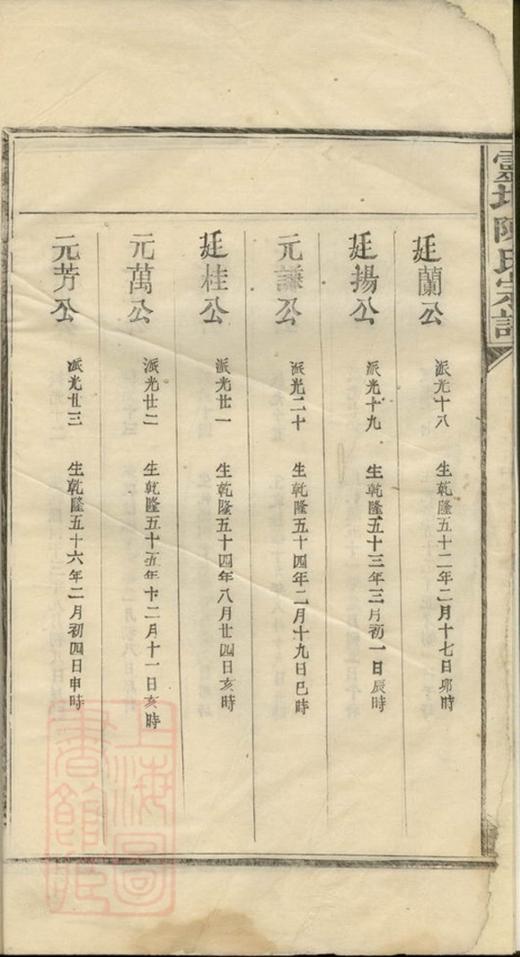 靈坑陳氏宗譜
廷蘭公 派光十八 生乾隆五十二年二月十七日卯時
廷揚公 派光十九 生乾隆五十三年三月初一日辰時
元謙公 派光二十 生乾隆五十四年二月十九日巳時
廷桂公 派光廿一 生乾隆五十四年八月廿四日亥時
元萬公 派光廿二 生乾隆五十五年十二月十一日亥時
元芳公 派光廿三 生乾隆五十六年二月初四日申時
上海圖書館藏